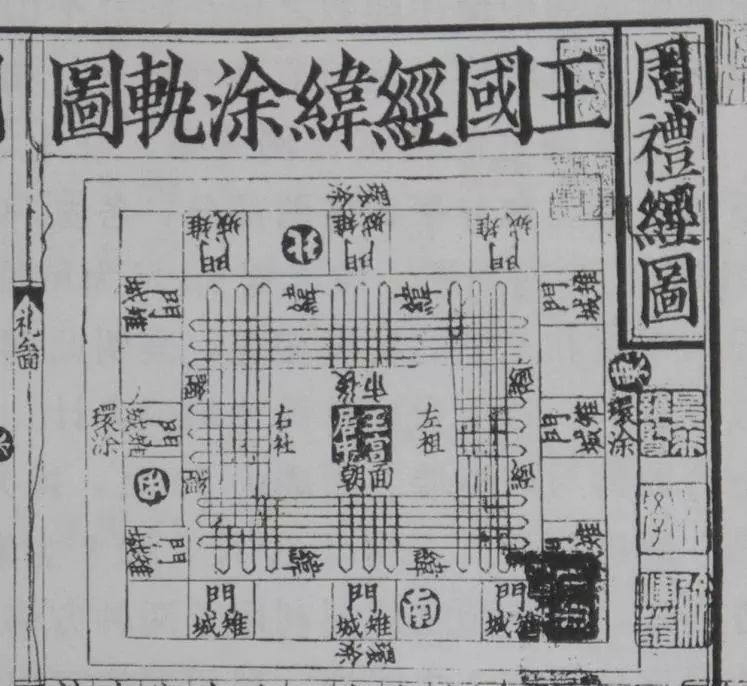 周禮經圖
王國經緯涂軌圖
環涂
門
雉城
門
雉城
門
雉城
北
緯
緯
門
雉城
門
雉城
門
雉城
東
環涂
經
經
市後
王宮居中
面朝
左祖
右社
經
經
門
雉城
門
雉城
門
雉城
西
環涂
緯
緯
門
雉城
門
雉城
門
雉城
南
環涂